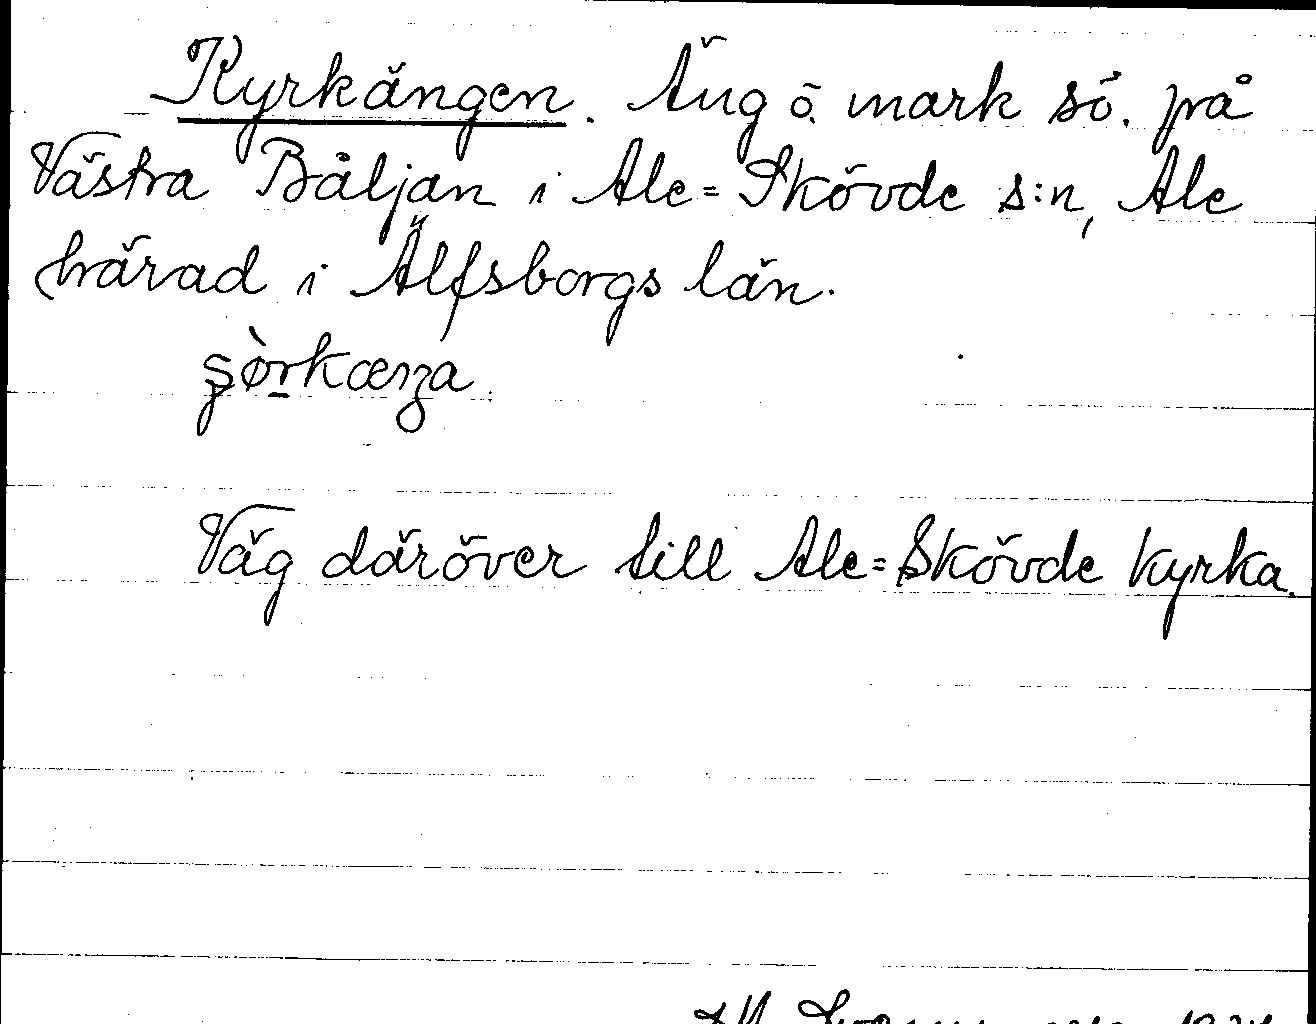 Kyrkängen. Äng ö. mark sö. på
Västra Båljan i Ale=Skövde s:n, Ale
härad i Älfsborgs län.
Väg däröver till Ale=Skövde kyrka.